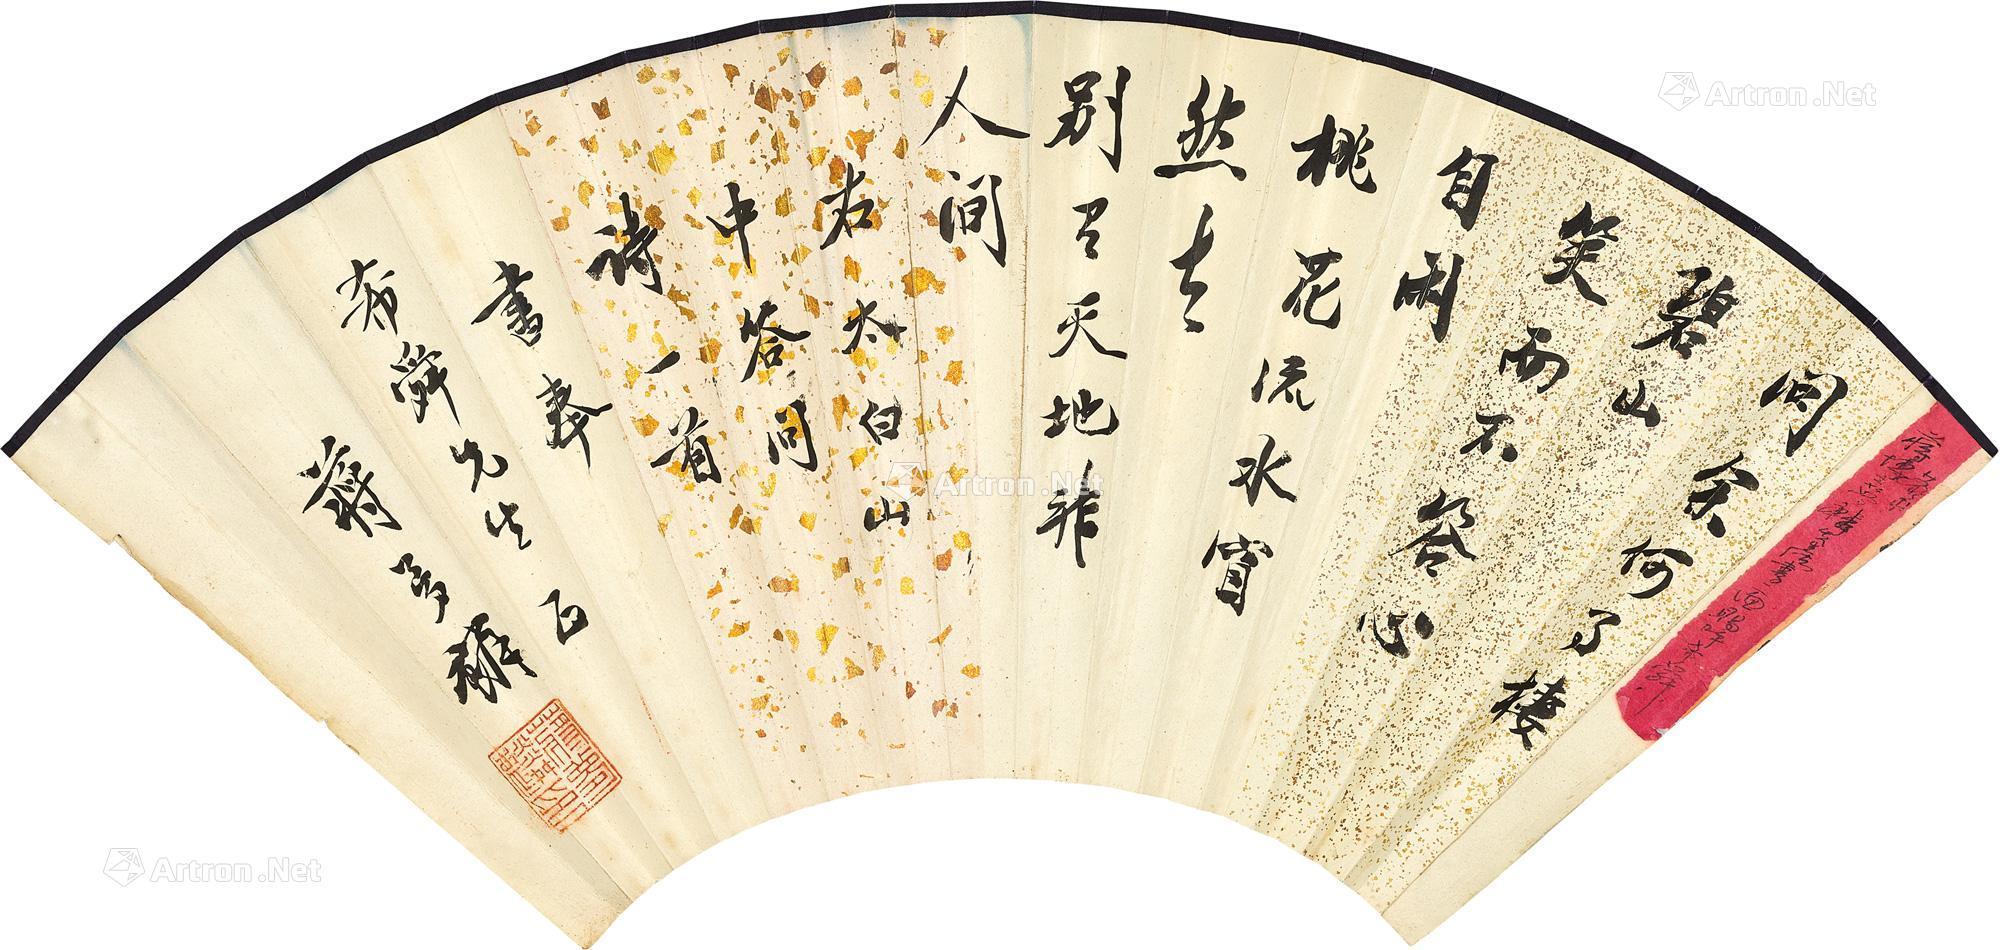 问余何事棲
碧山
笑而不答心
自閑
桃花流水窅
然去
别有天地非
人间
右太白山
中答问
诗一首
書奉
希舜先生正
蔣夢麟
Artron.Net
Artron.Net
Artron.Net